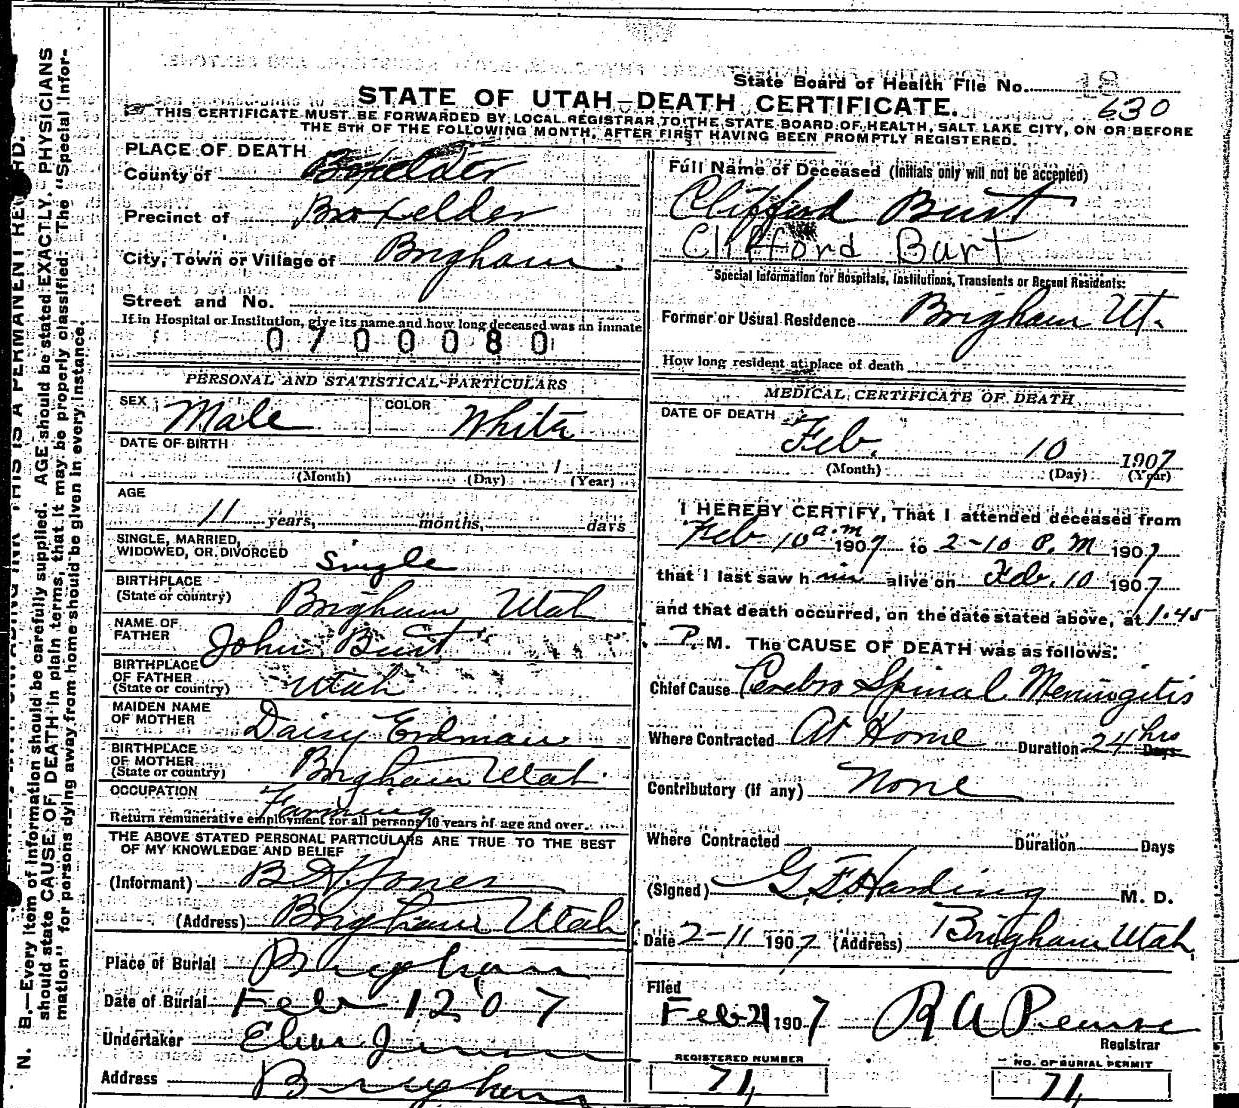 State Board of Health File No. 18
630
STATE OF UTAH—DEATH CERTIFICATE.
THIS CERTIFICATE MUST BE FORWARDED BY LOCAL REGISTRAR TO THE STATE BOARD OF HEALTH, SALT LAKE CITY, ON OR BEFORE
THE 5TH OF THE FOLLOWING MONTH, AFTER FIRST HAVING BEEN PROMPTLY REGISTERED.
PLACE OF DEATH
County of Boxelder
Precinct of Boxelder
City, Town or Village of Brigham
Street and No.
If in Hospital or Institution, give its name and how long deceased was an inmate
0700080
PERSONAL AND STATISTICAL PARTICULARS
SEX Male COLOR White
DATE OF BIRTH
1
(Month) (Day) (Year)
AGE
11 years, months, days
SINGLE, MARRIED,
WIDOWED, OR DIVORCED Single
BIRTHPLACE
(State or country) Brigham Utah
NAME OF
FATHER John Burt
BIRTHPLACE
OF FATHER
(State or country) Utah
MAIDEN NAME
OF MOTHER Daisy Erdman
BIRTHPLACE
OF MOTHER
(State or country) Brigham Utah
OCCUPATION Farming
Return remunerative employment for all persons 10 years of age and over.
THE ABOVE STATED PERSONAL PARTICULARS ARE TRUE TO THE BEST
OF MY KNOWLEDGE AND BELIEF
(Informant) B H Jones
(Address) Brigham Utah
Place of Burial Brigham
Date of Burial Feb 12 07
Undertaker
Address Brigham
Full Name of Deceased (Initials only will not be accepted)
Clifford Burt
Clifford Burt
Special Information for Hospitals, Institutions, Transients or Recent Residents:
Former or Usual Residence Brigham Ut.
How long resident at place of death
MEDICAL CERTIFICATE OF DEATH
DATE OF DEATH
Feb. 10 1907
(Month) (Day) (Year)
I HEREBY CERTIFY, That I attended deceased from
Feb 10 a.m 1907 to 2-10 P.M 1907
that I last saw him alive on Feb. 10 1907
and that death occurred, on the date stated above, at 1.45
P. M. The CAUSE OF DEATH was as follows:
Chief Cause Cerebro Spinal Meningitis
Where Contracted At Home Duration 24 hrs Days
Contributory (if any) None
Where Contracted Duration Days
(Signed) G. F. Harding M. D.
Date 2-11 1907 (Address) Brigham Utah
Filed
Feb 21 1907 R A Pearse
Registrar
REGISTERED NUMBER
71
NO. OF BURIAL PERMIT
71
THIS IS A PERMANENT RECORD.
N. B.—Every item of information should be carefully supplied. AGE should be stated EXACTLY. PHYSICIANS
should state CAUSE OF DEATH in plain terms, that it may be properly classified. The "Special Infor-
mation" for persons dying away from home should be given in every instance.